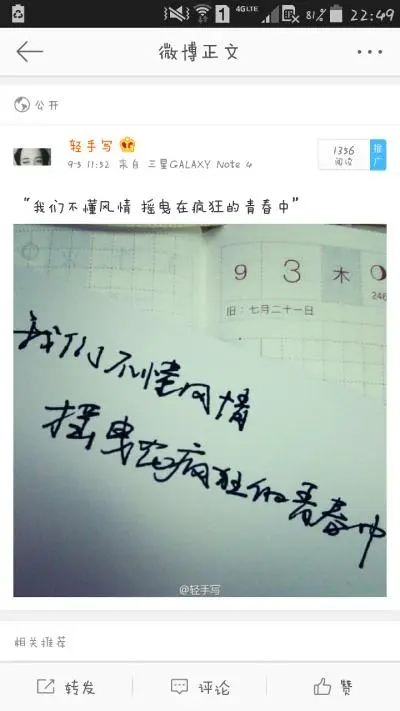 4G LTE 1 81% 22:49
微博正文
公开
轻手写
9-5 11:52 来自 三星GALAXY Note 4
1356
阅读
推广
“我们不懂风情 摇曳在疯狂的青春中”
9 3 木
246
旧：七月二十一日
我们不懂风情
摇曳在疯狂的青春中
@轻手写
相关推荐
转发 评论 赞